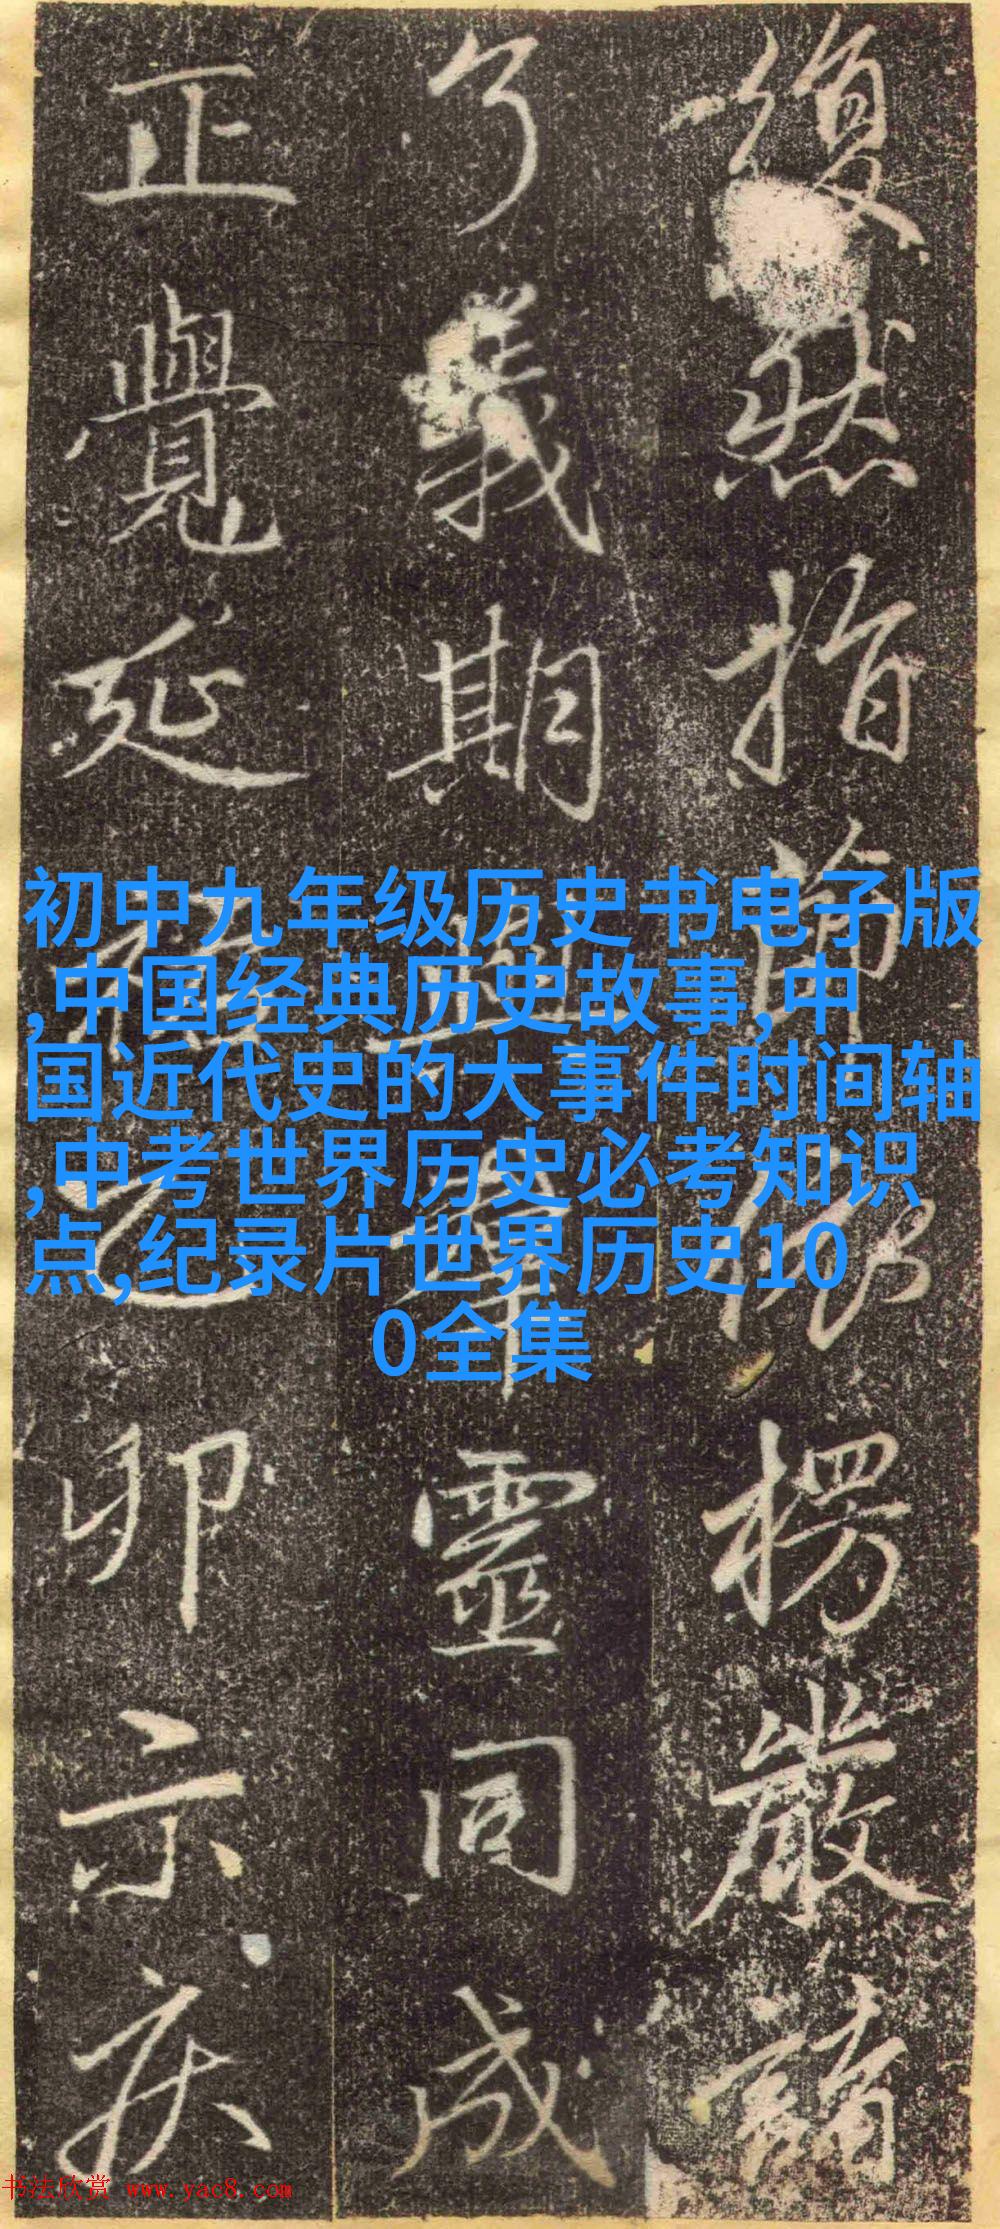 復然指節
楞嚴
了義期
靈同成
正覺延
卯示疾
初中九年级历史书电子版
,中国经典历史故事,中
国近代史的大事件时间轴
,中考世界历史必考知识
点,纪录片世界历史10
0全集
书法欣赏 www.yac8.com